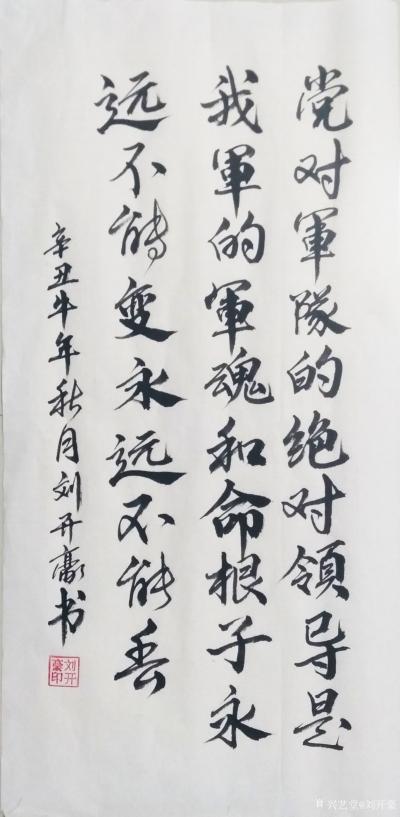 党对軍隊的绝对領导是
我軍的軍魂和命根子永
远不能变永远不能丢
辛丑牛年秋月刘开豪书
刘开
豪印
兴艺堂@刘开豪